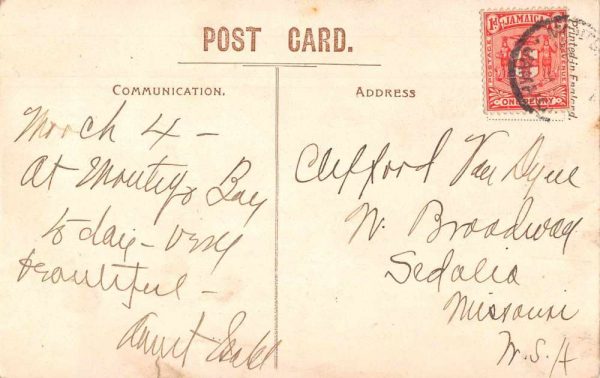 POST CARD.
JAMAICA
1D
POSTAGE
REVENUE
ONE PENNY
Printed in England.
COMMUNICATION.
ADDRESS
March 4 –
At Montego Bay
to day – very
beautiful –
Aunt
Clifford Van Dyne
W. Broadway
Sedalia
Missouri
U.S.A